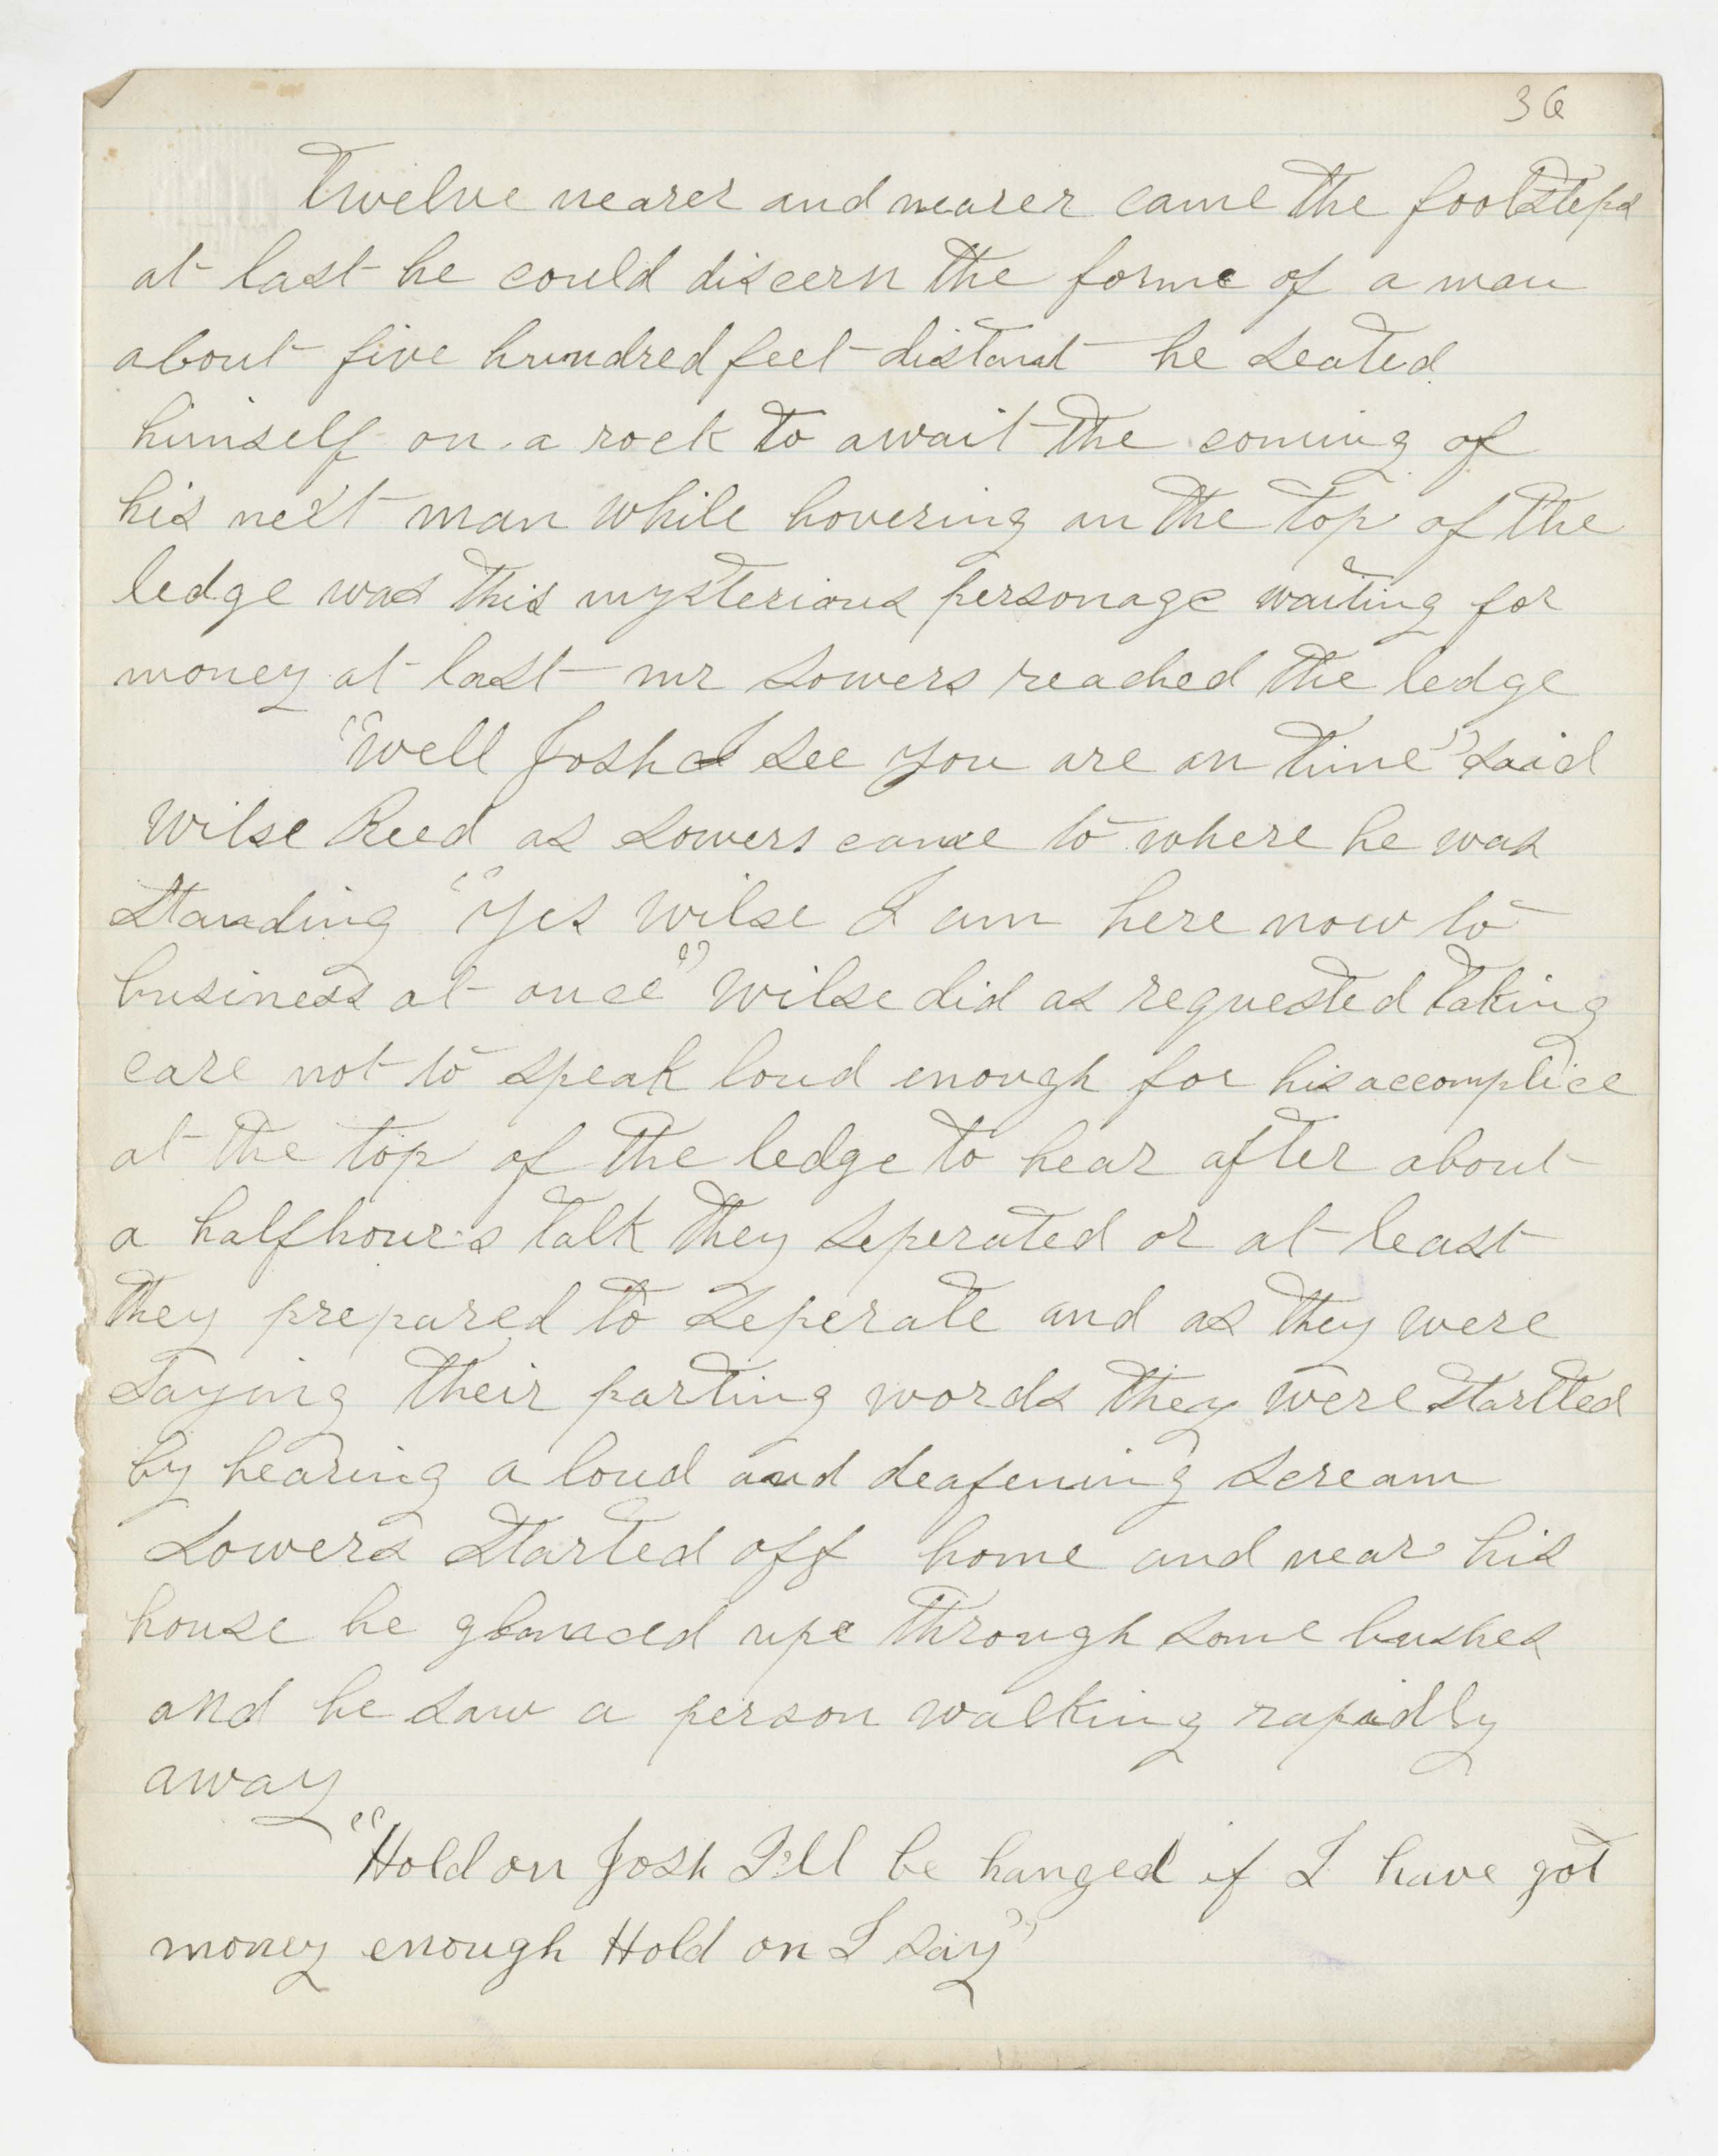 36
Twelve nearer and nearer came the footsteps
at last he could discern the forme of a man
about five hundred feet distant he seated
himself on a rock to await the coming of
his next man while hovering on the top of the
ledge was this mysterious personage waiting for
money at last mr Sowers reached the ledge
"Well Josh I see you are on time" said
Wilse Reed as Sowers came to where he was
standing "Yes Wilse I am here now to
business at once" Wilse did as requested taking
care not to speak loud enough for his accomplice
at the top of the ledge to hear after about
a half hour's talk they seperated or at least
they prepared to seperate and as they were
saying their parting words they were startted
by hearing a loud and deafening scream
Sowers started off home and near his
house he glanced upe through some bushes
and he saw a person walking rapidly
away
"Hold on Josh I'll be hanged if I have got
money enough Hold on I say"